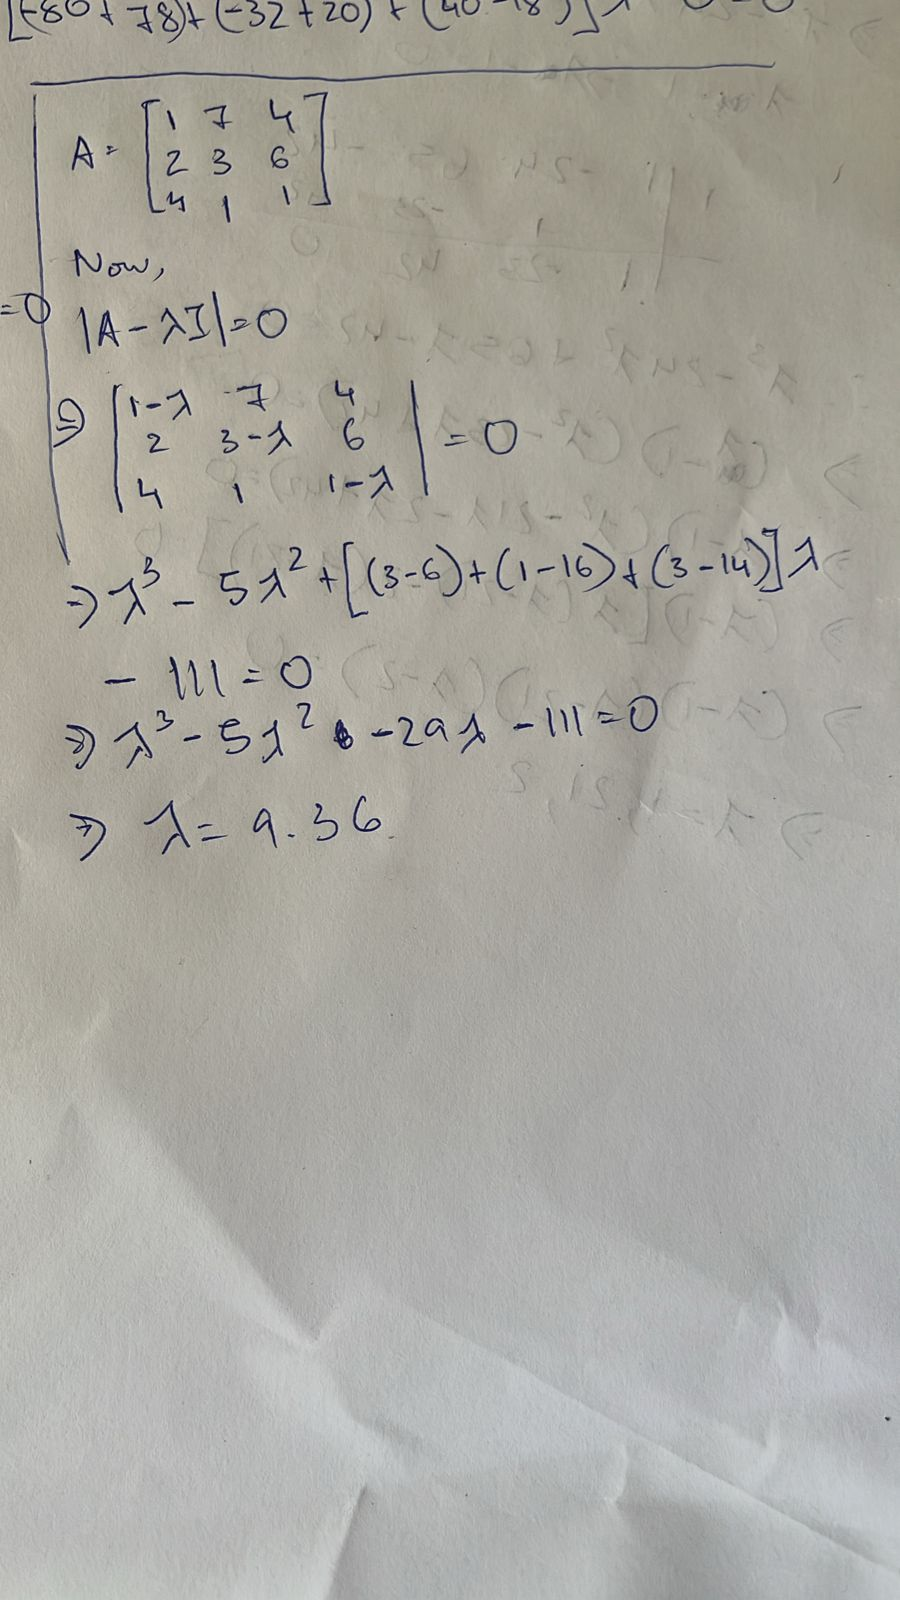 [(-80+78)+(-32+20)+(40-18)]λ
A = [1 7 4
2 3 6
4 1 1]
Now,
=0
|A-λI|=0
⇒ |1-λ 7 4
2 3-λ 6
4 1 1-λ| = 0
⇒ λ³ - 5λ² + [(3-6)+(1-16)+(3-14)]λ
- 111 = 0
⇒ λ³ - 5λ² -29λ - 111 = 0
⇒ λ = 9.36